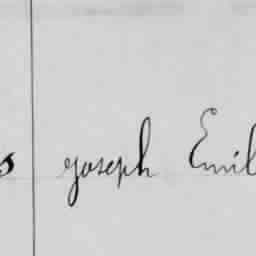 s joseph Emil